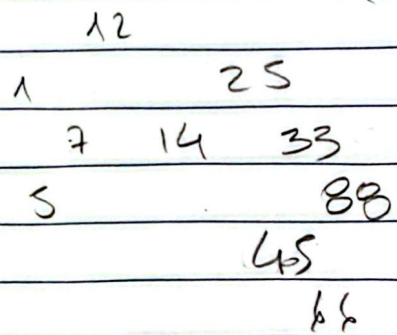 12
1 25
7 14 33
5 88
45
66